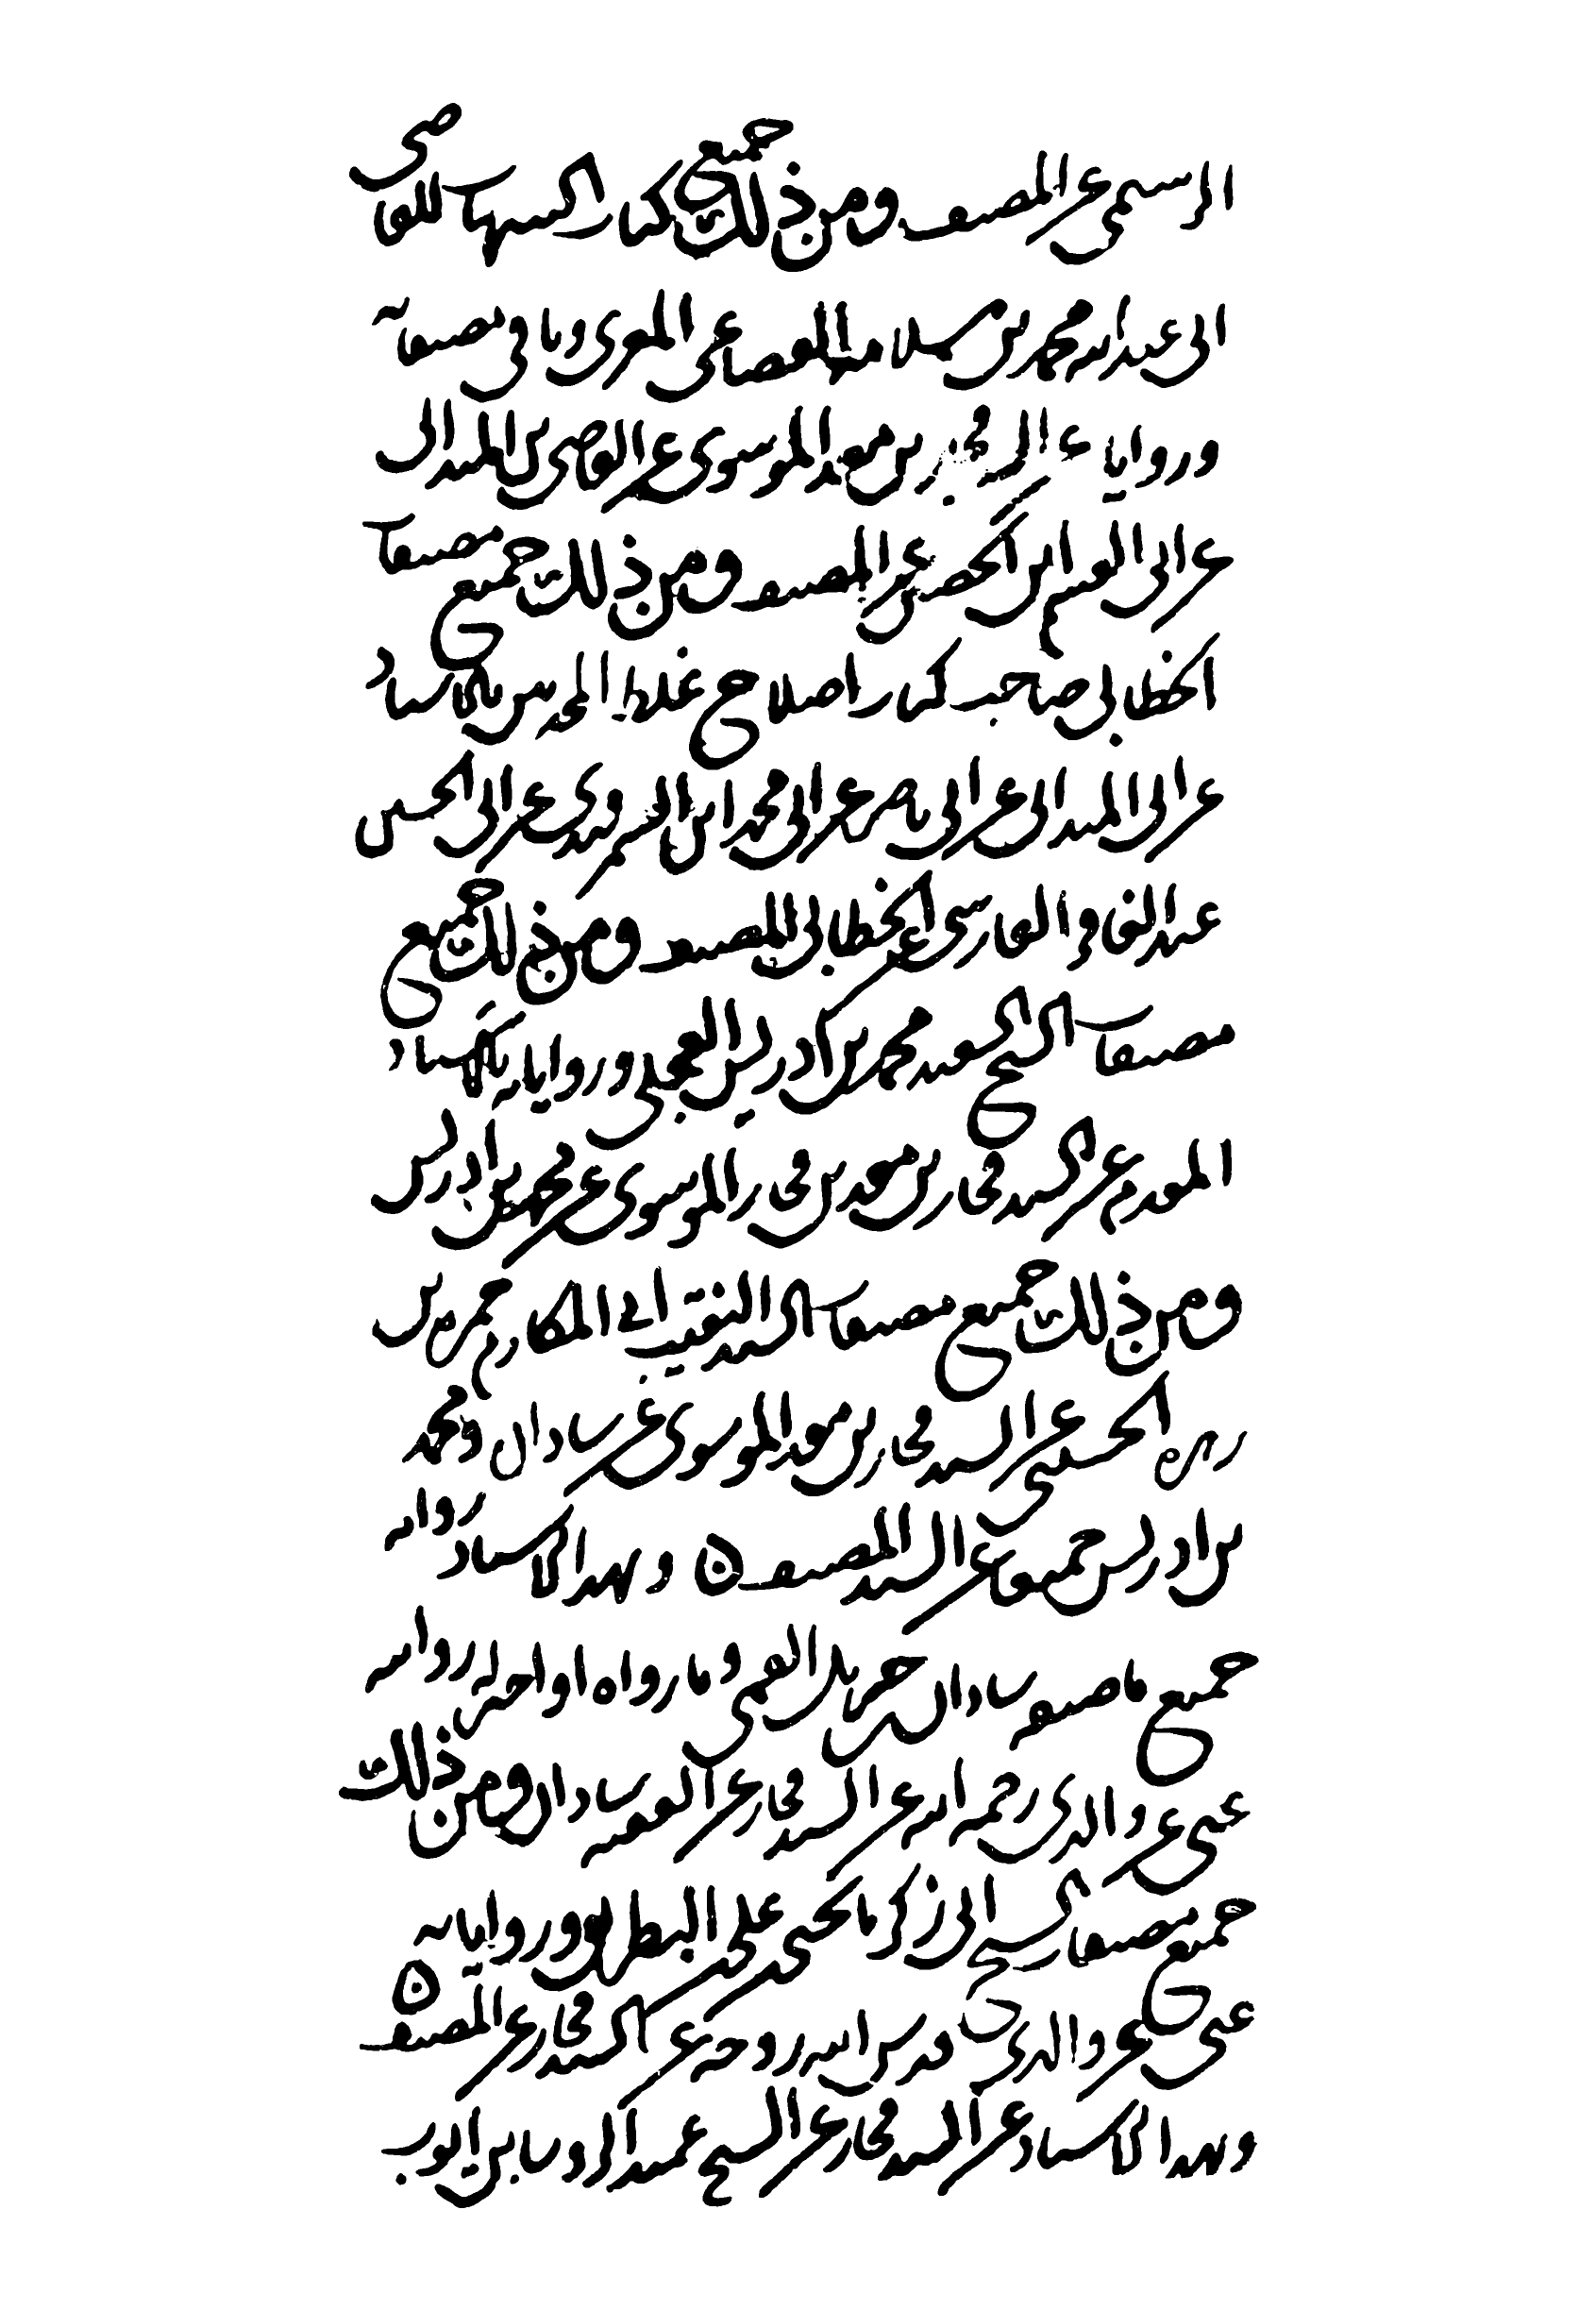 الرسمى عن المصنف ومن ذلك جميع كتاب الشهاب للقاضى
ابى عبد الله محمد بن سلامه القضاعى المغربى وباقى مصنفاته
ورواياته عن السيد فخار بن معد الموسوى عن القاضى بن الميدانى
عن ابى القسم ابن الحصين عن المصنف ومن ذلك جميع مصنفات
الخطابى صاحب كتاب اصلاح غلط المحدثين بالاسناد
عن ابن الميدانى عن ابن ناصر عن ابى محمد ابن السمرقندى عن ابى الحسين
عبد الغافر الفارسى عن الخطابى المصنف ومن ذلك جميع
مصنفات الشيخ السعيد محمد بن ادريس العجلى ورواياته بالاسناد
المقدم عن السيد فخار بن معد بن فخار الموسوى عن محمد بن ادريس
ومن ذلك جميع مصنفات السيد النقيب ابى المكارم حمزه بن
زهره الحسينى عن السيد فخار بن معد الموسوى عن شاذان ومحمد
بن ادريس جميعا عن السيد المصنف وبهذا الاسناد روايه
جميع ما صنفه شاذان بن جبرئيل القمى وما رواه او اجيز له روايته
عنى عن والدى رحمه الله عن السيد فخار عن الفقيه شاذان ومن ذلك
جميع مصنفات الشيخ ابى زكريا يحيى بن على البطريق ورواياته
عنى عن والدى قدس الله روحه عن السيد فخار عن المصنف
وبهذا الاسناد عن السيد فخار عن الشيخ عميد الرؤسا بن ايوب